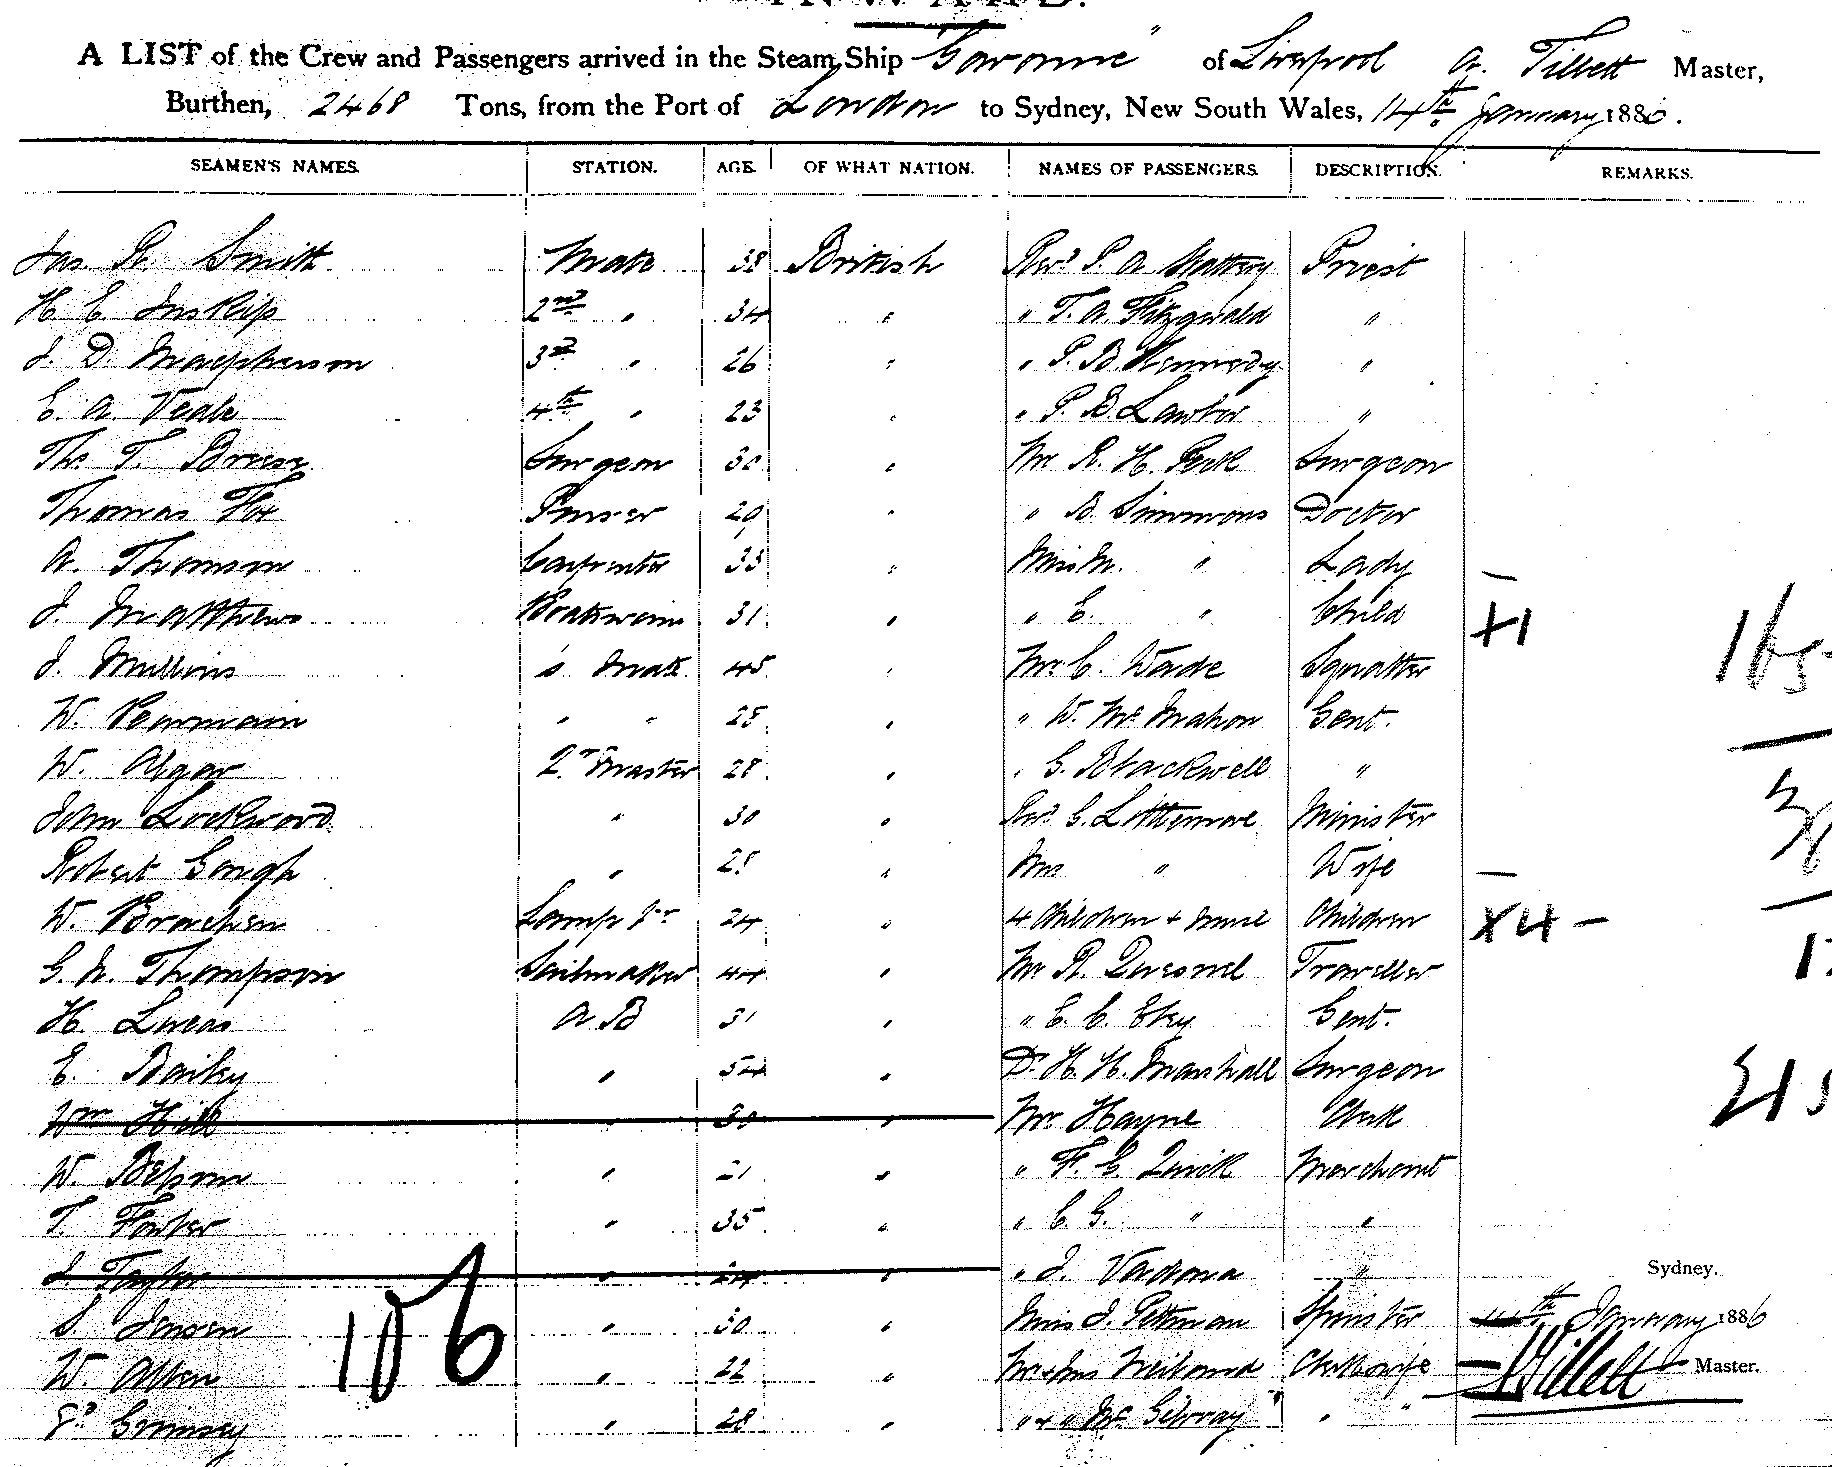 A LIST of the Crew and Passengers arrived in the Steam Ship "Garonne" of Liverpool A. Tillett Master,
Burthen, 2468 Tons, from the Port of London to Sydney, New South Wales, 14th January 1886.
SEAMEN'S NAMES. STATION. AGE. OF WHAT NATION. NAMES OF PASSENGERS. DESCRIPTION. REMARKS.
Jas. R. Smith Mate 38 British Revd P. A. Slattery Priest
H. E. Inskip 2nd " 34 " " T. A. Fitzgerald "
J. D. Macpherson 3rd " 26 " " P. B. Kennedy "
E. A. Veale 4th " 23 " " P. B. Lawlor "
Thos. T. Surgeon 30 " Mr R. H. Peck Surgeon
Thomas Fox Purser 20 " " B. Simmons Doctor
A. Thomson Carpenter 33 " Miss M. " Lady
J. Matthews Boatswain 31 " " E. " Child X1
J. Mullins 's Mate 45 " Mr C. Wade Squatter
W. Pearmain " " 25 " " W. McMahon Gent.
W. Algar Qr Master 28 " " G. Blackwell "
John Lockwood " 30 " Revd G. Littlemore Minister
Robert Gough " 28 " Mrs " Wife
W. Brachen Lamp Tr 24 " 4 Children + Children X4 -
G. N. Thompson Sailmaker 44 " Mr R. Quesnel Traveller
H. Lucas A B 31 " " E. C. Gent.
E. Bailey " 54 " Dr H. H. Marshall Surgeon
Wm Hill " 30 " Mr. Hayne Clerk
W. " 21 " " F. C. Quick Merchant
T. Fowler " 35 " " C. G. " "
J. Taylor " 24 " " J. Vadona "
Sydney.
S. Jensen " 30 " Miss J. Pittman Spinster 14th January 1886
W. Allen " 22 " Mr + Mrs Clerk & wife Tillett Master.
Grimsey " 28 " " + " McGilvray " "
106